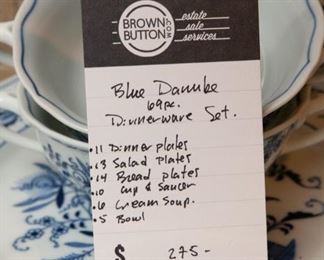 BROWN
BUTTON
.COM
estate
sale
services
Blue Danube
69pc.
Dinnerware Set.
.11 Dinner plates
.13 Salad plates
.14 Bread plates
.10 cup & saucer
.6 Cream Soup.
.5 Bowl
$ 275-